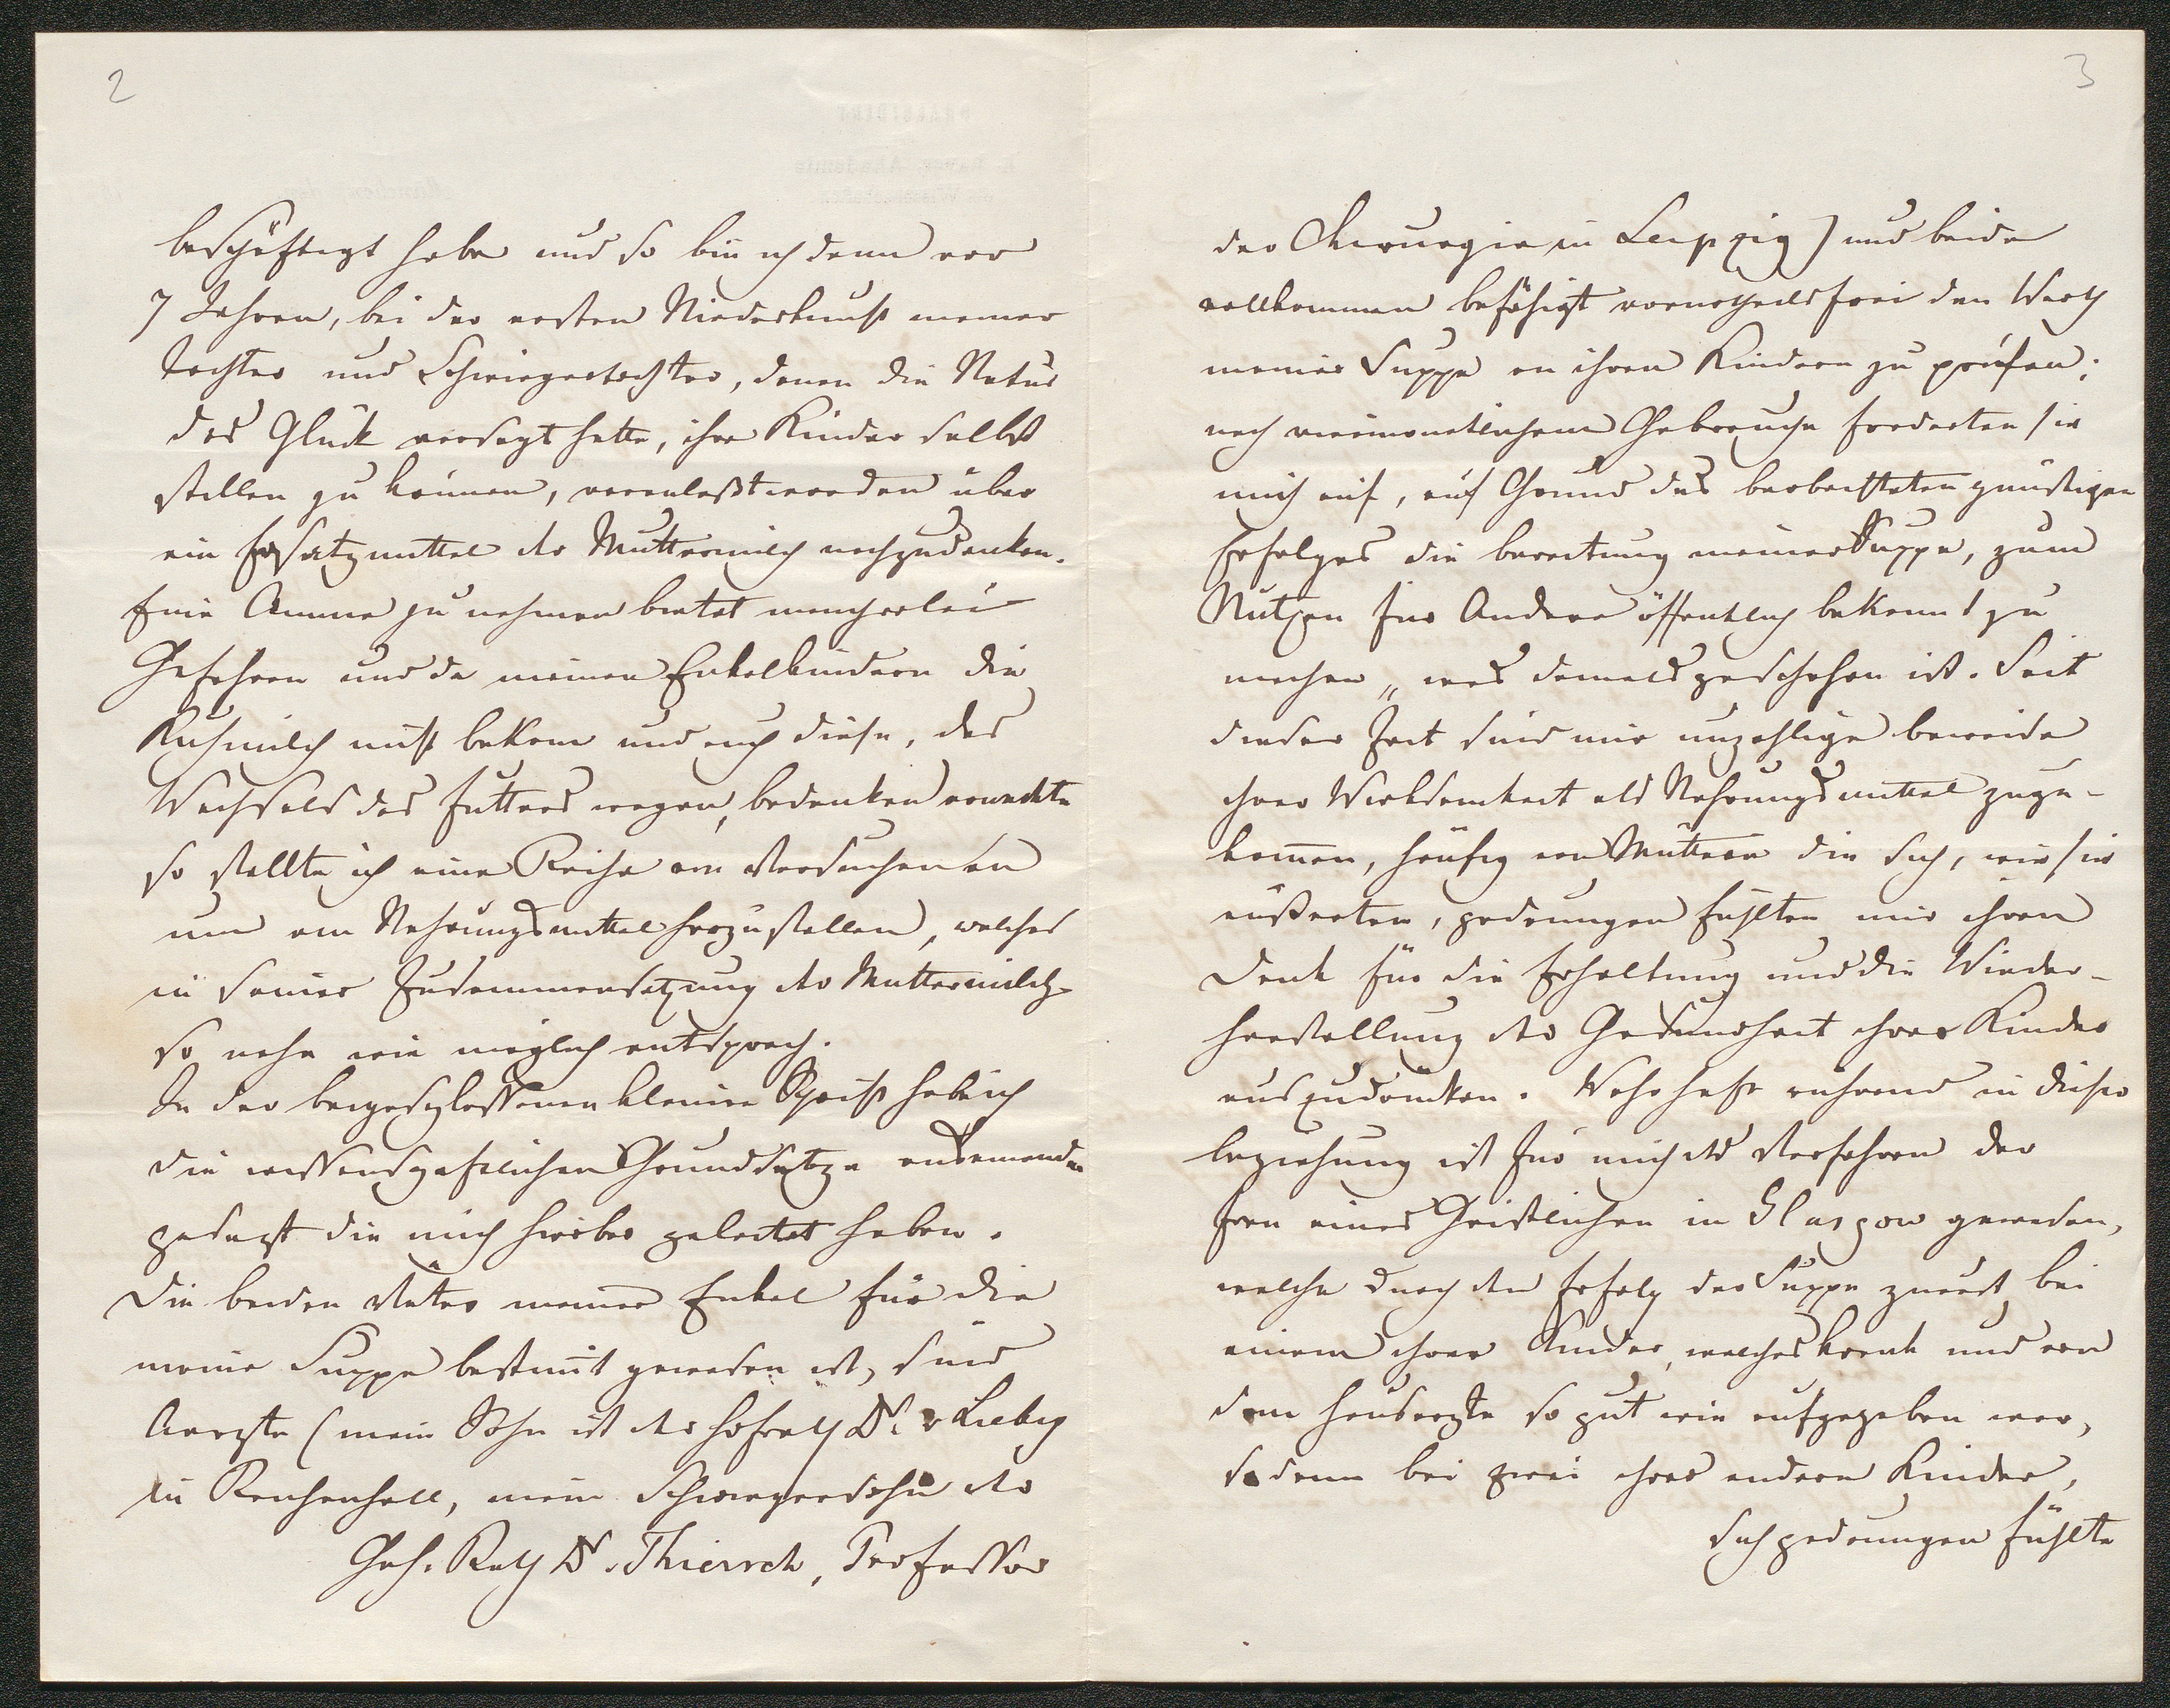 2
beschäftigt habe und so bin ich denn vor
7 Jahren, bei der ersten Niederkunft meiner
Tochter und Schwiegertochter, denen die Natur
das Glück versagt hatte, ihre Kinder selbst
stillen zu können, veranlaßt worden über
ein Ersatzmittel der Muttermilch nachzudenken.
Eine Amme zu nehmen bietet mancherlei
Gefahren und da meinen Enkelkindern die
Kuhmilch nicht bekam und auch diese, des
Wechsels des Futters wegen, bedenken erweckte
so stellte ich eine Reihe von Versuchen an
um ein Nahrungsmittel herzustellen, welches
in seiner Zusammensetzung der Muttermilch
so nahe wie möglich entsprach.
In der beigeschlossenen kleinen Schrift habe ich
die wissenschaftlichen Grundsätze auseinander
gesetzt die mich hierbei geleitet haben.
Die beiden Väter meiner Enkel für die
meine Suppe bestimt gewesen ist, sind
Aerzte (mein Sohn ist der Hofrath Dr. v Liebig
in Reichenhall, mein Schwiegersohn der
Geh. Rath Dr. Thiersch, Professor
3
der Chirurgie in Leipzig) und beide
vollkommen befähigt vorurtheilsfrei den Werth
meiner Suppe an ihren Kindern zu prüfen;
nach viermonatlichem Gebrauche forderten sie
mich auf, auf Grund des beobachteten günstigen
Erfolges die bereitung meiner Suppe, zum
Nutzen für Andere öffentlich bekannt zu
machen, was damals geschehen ist. Seit
dieser Zeit sind mir unzählige beweise
ihrer Wirksamkeit als Nahrungsmittel zuge-
kommen, häufig von Müttern die sich, wie sie
äußerten, gedrungen fühlten mir ihren
Dank für die Erhaltung und die Wieder-
herstellung der Gesundheit ihrer Kinder
auszudrücken. Wahrhaft rührend in dieser
beziehung ist für mich das Verfahren der
Frau eines Geistlichen in Glasgow gewesen,
welche durch den Erfolg der Suppe zuerst bei
einem ihrer Kinder, welches krank und von
dem Hausarzte so gut wie aufgegeben war,
sodann bei zwei ihrer andern Kinder,
sich gedrungen fühlte